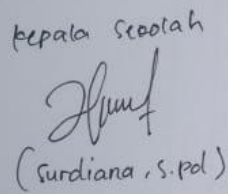 kepala seoolah
(Surdiana, S.pd)